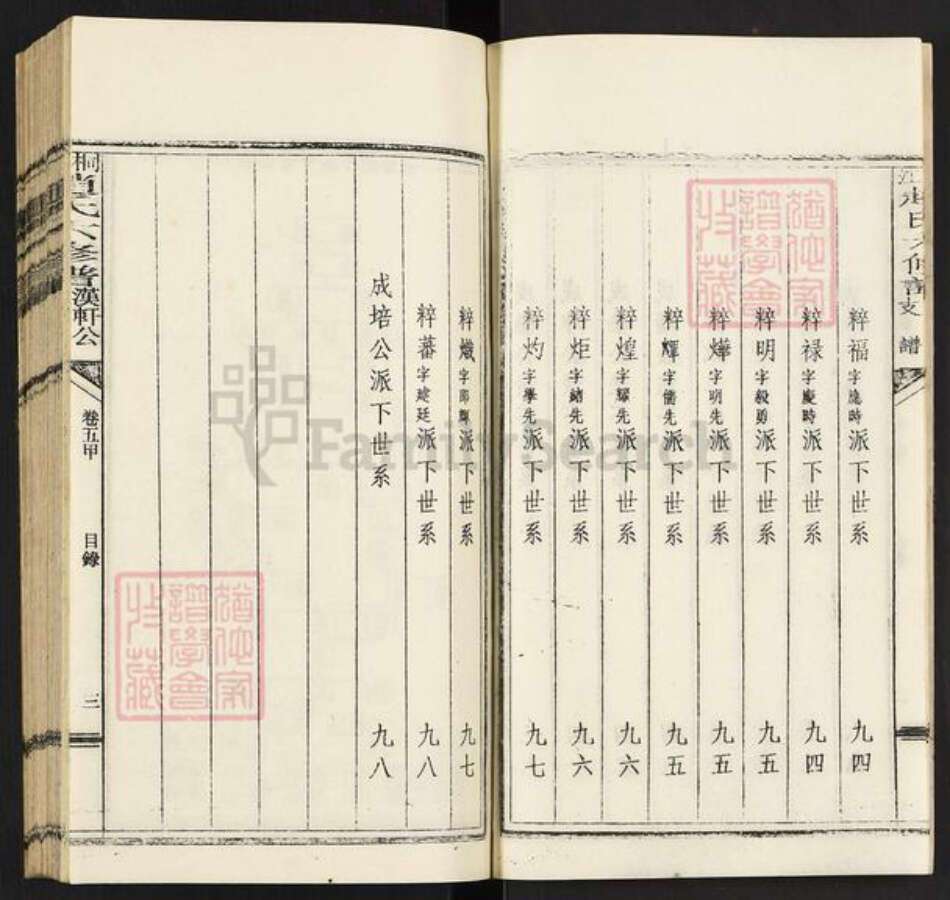 粹福字先時派下世系 九四
粹祿字慶時派下世系 九四
粹明字毅勇派下世系 九五
粹燁字明先派下世系 九五
粹輝字先派下世系 九五
粹煌字耀先派下世系 九六
粹炬字緒先派下世系 九六
粹灼字學先派下世系 九七
粹熾字輝派下世系 九七
粹蕃字建廷派下世系 九八
成培公派下世系 九八
桐 氏六修譜漢軒公
卷五甲
目錄
三
支譜
猶他家譜學會收藏
猶他家譜學會收藏
FamilySearch